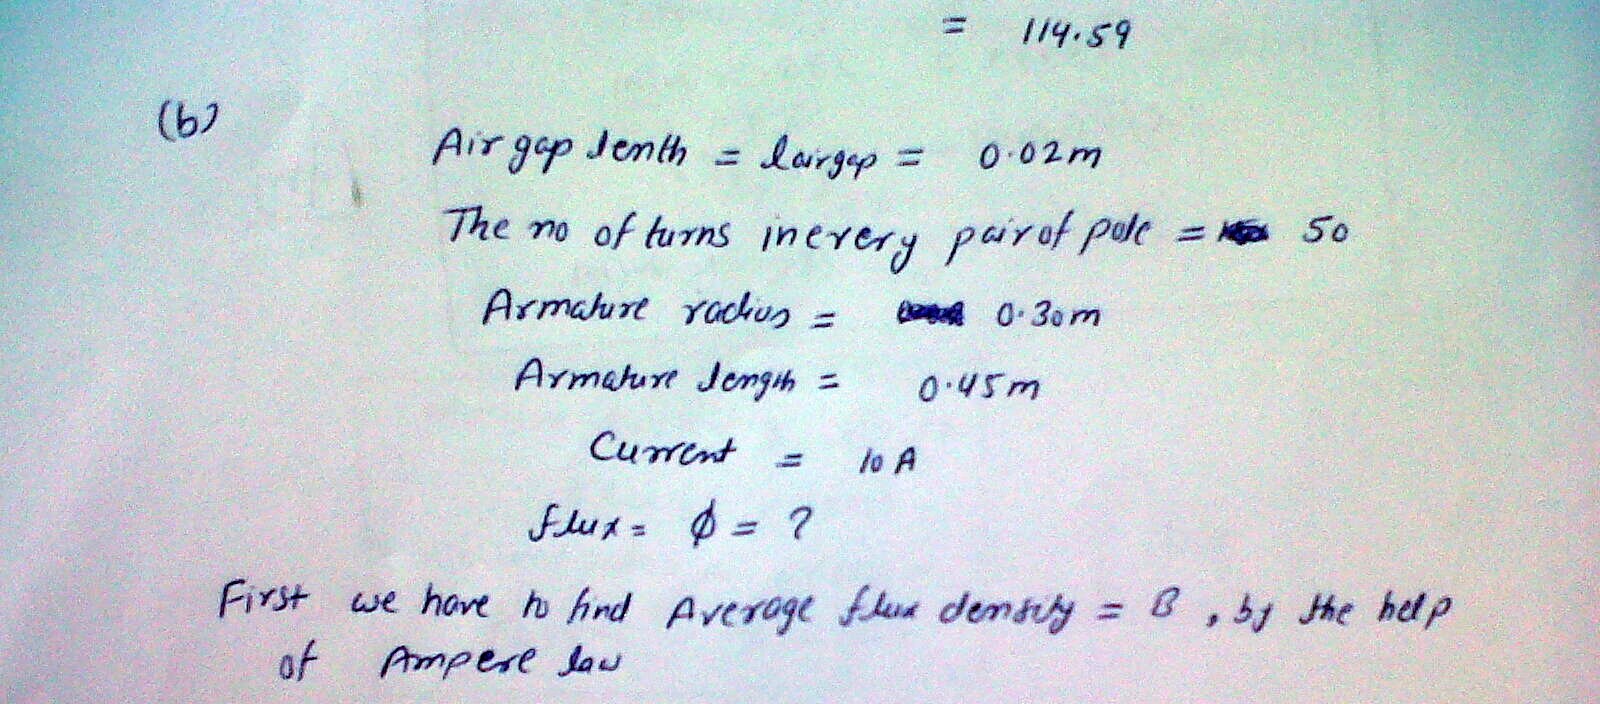 = 114.59
(b)
Air gap lenth = lairgap = 0.02m
The no of turns in every pair of pole = 50
Armature radius = 0.30m
Armature length = 0.45m
Current = 10 A
flux = ϕ = ?
First we have to find Average flux density = B , by the help
of Ampere law